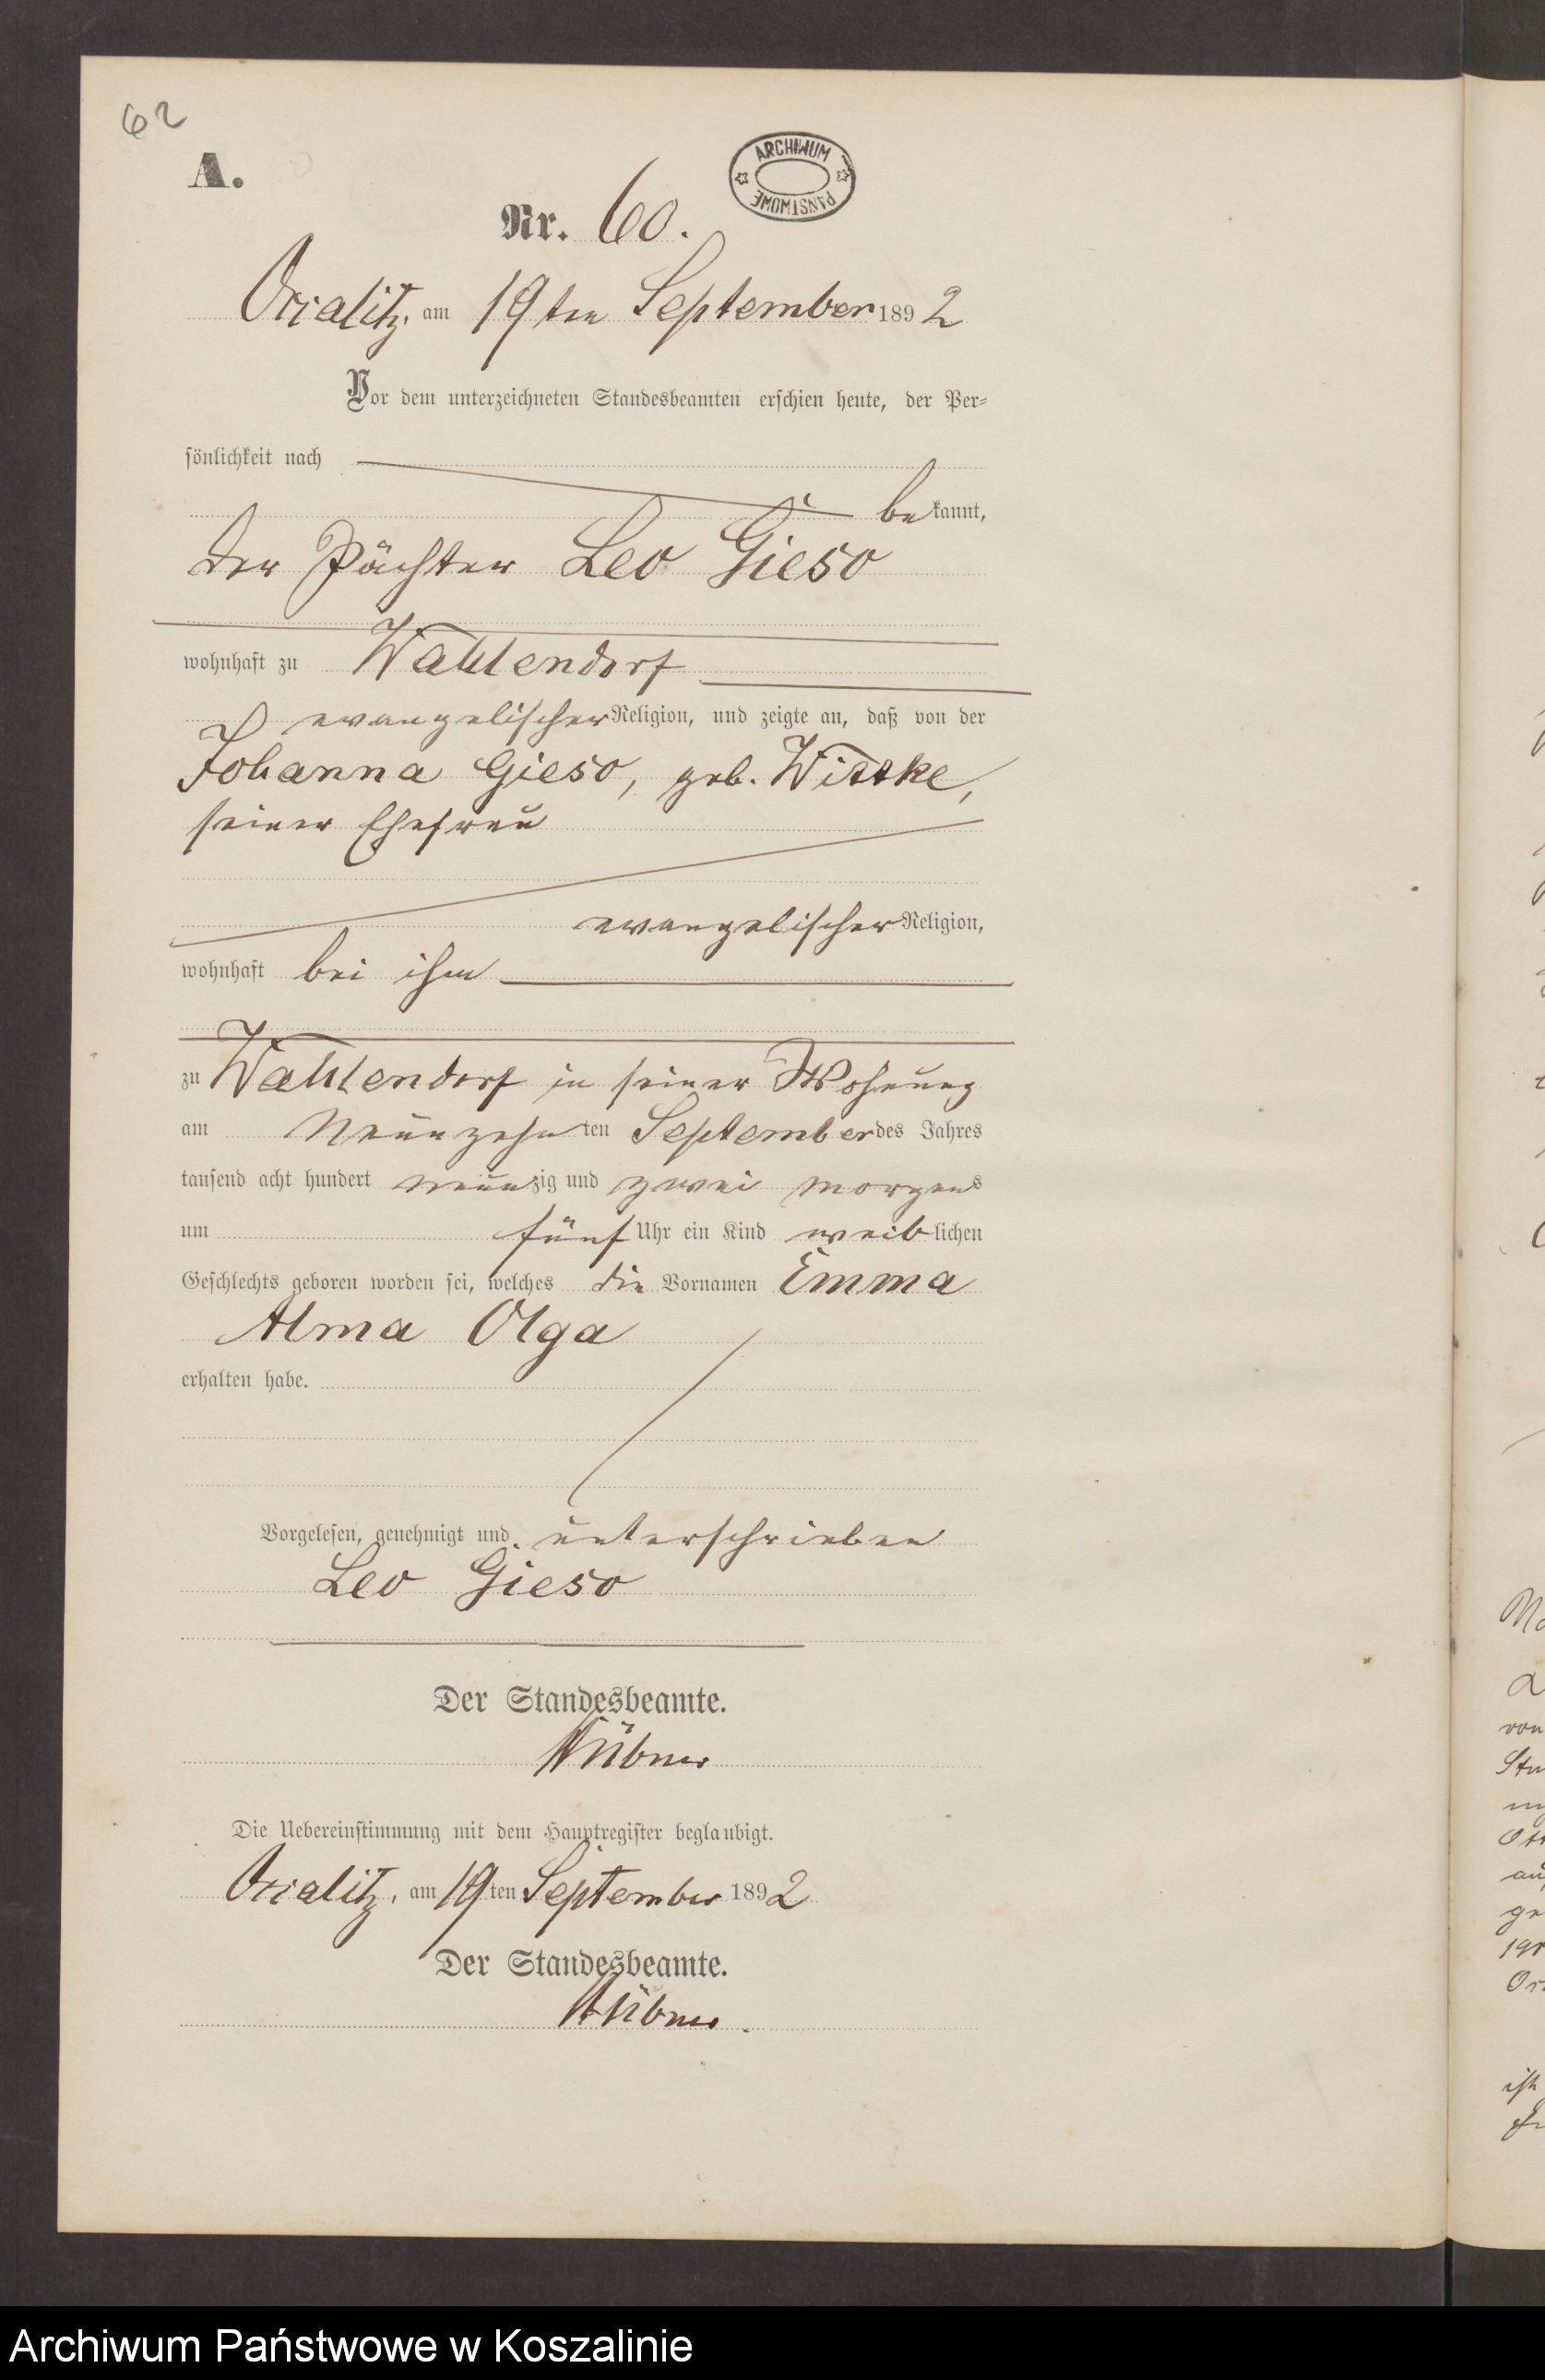 62
A.
ARCHIWUM
PAŃSTWOWE
Nr. 60.
am 19ten September 1892
Vor dem unterzeichneten Standesbeamten erschien heute, der Per-
sönlichkeit nach
bekannt,
der Pächter Leo Gieso
wohnhaft zu Wahlendorf
evangelischer Religion, und zeigte an, daß von der
Johanna Gieso, geb. Wittke,
seiner Ehefrau
evangelischer Religion,
wohnhaft bei ihm
zu Wahlendorf in seiner Wohnung
am neunzehnten September des Jahres
tausend acht hundert neunzig und zwei morgens
um fünf Uhr ein Kind weiblichen
Geschlechts geboren worden sei, welches die Vornamen Emma
Alma Olga
erhalten habe.
Vorgelesen, genehmigt und unterschrieben
Leo Gieso
Der Standesbeamte.
Hübner
Die Uebereinstimmung mit dem Hauptregister beglaubigt.
am 19ten September 1892
Der Standesbeamte.
Hübner
Archiwum Państwowe w Koszalinie